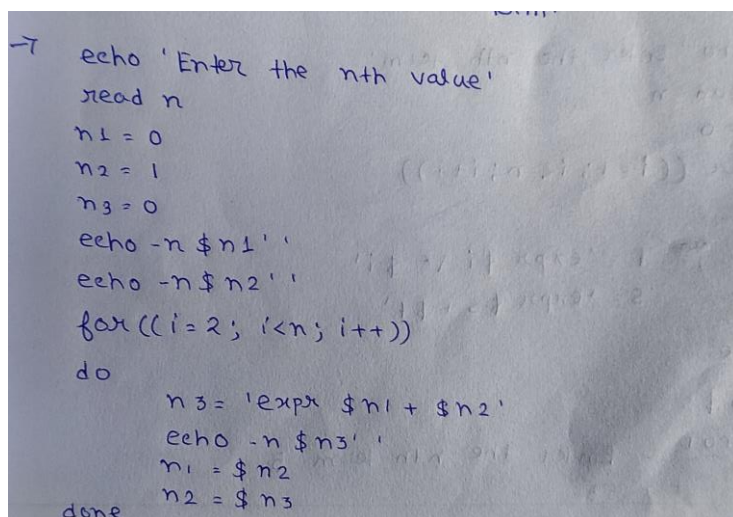 → echo 'Enter the nth value'
read n
n1 = 0
n2 = 1
n3 = 0
echo -n $n1' '
echo -n $n2' '
for ((i=2; i<n; i++))
do
n3 = 'expr $n1 + $n2'
echo -n $n3' '
n1 = $n2
n2 = $n3
done